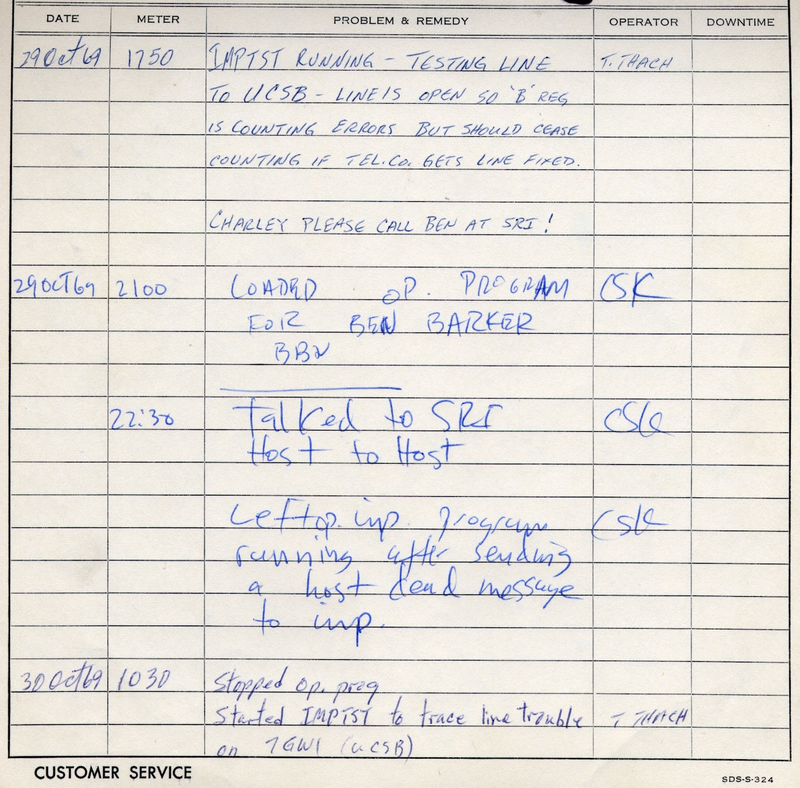 DATE METER PROBLEM & REMEDY OPERATOR DOWNTIME
29Oct69 1750 IMPTST RUNNING - TESTING LINE T. THACH
TO UCSB - LINE IS OPEN SO 'B' REG
IS COUNTING ERRORS BUT SHOULD CEASE
COUNTING IF TEL.CO. GETS LINE FIXED.
CHARLEY PLEASE CALL BEN AT SRI!
29OCT69 2100 LOADED OP. PROGRAM CSK
FOR BEN BARKER
BBN
22:30 Talked to SRI CSK
Host to Host
Left op. imp. program CSK
running after sending
a host dead message
to imp.
30Oct69 1030 Stopped op. prog
Started IMPTST to trace line trouble T THACH
on (UCSB)
CUSTOMER SERVICE
SDS-S-324